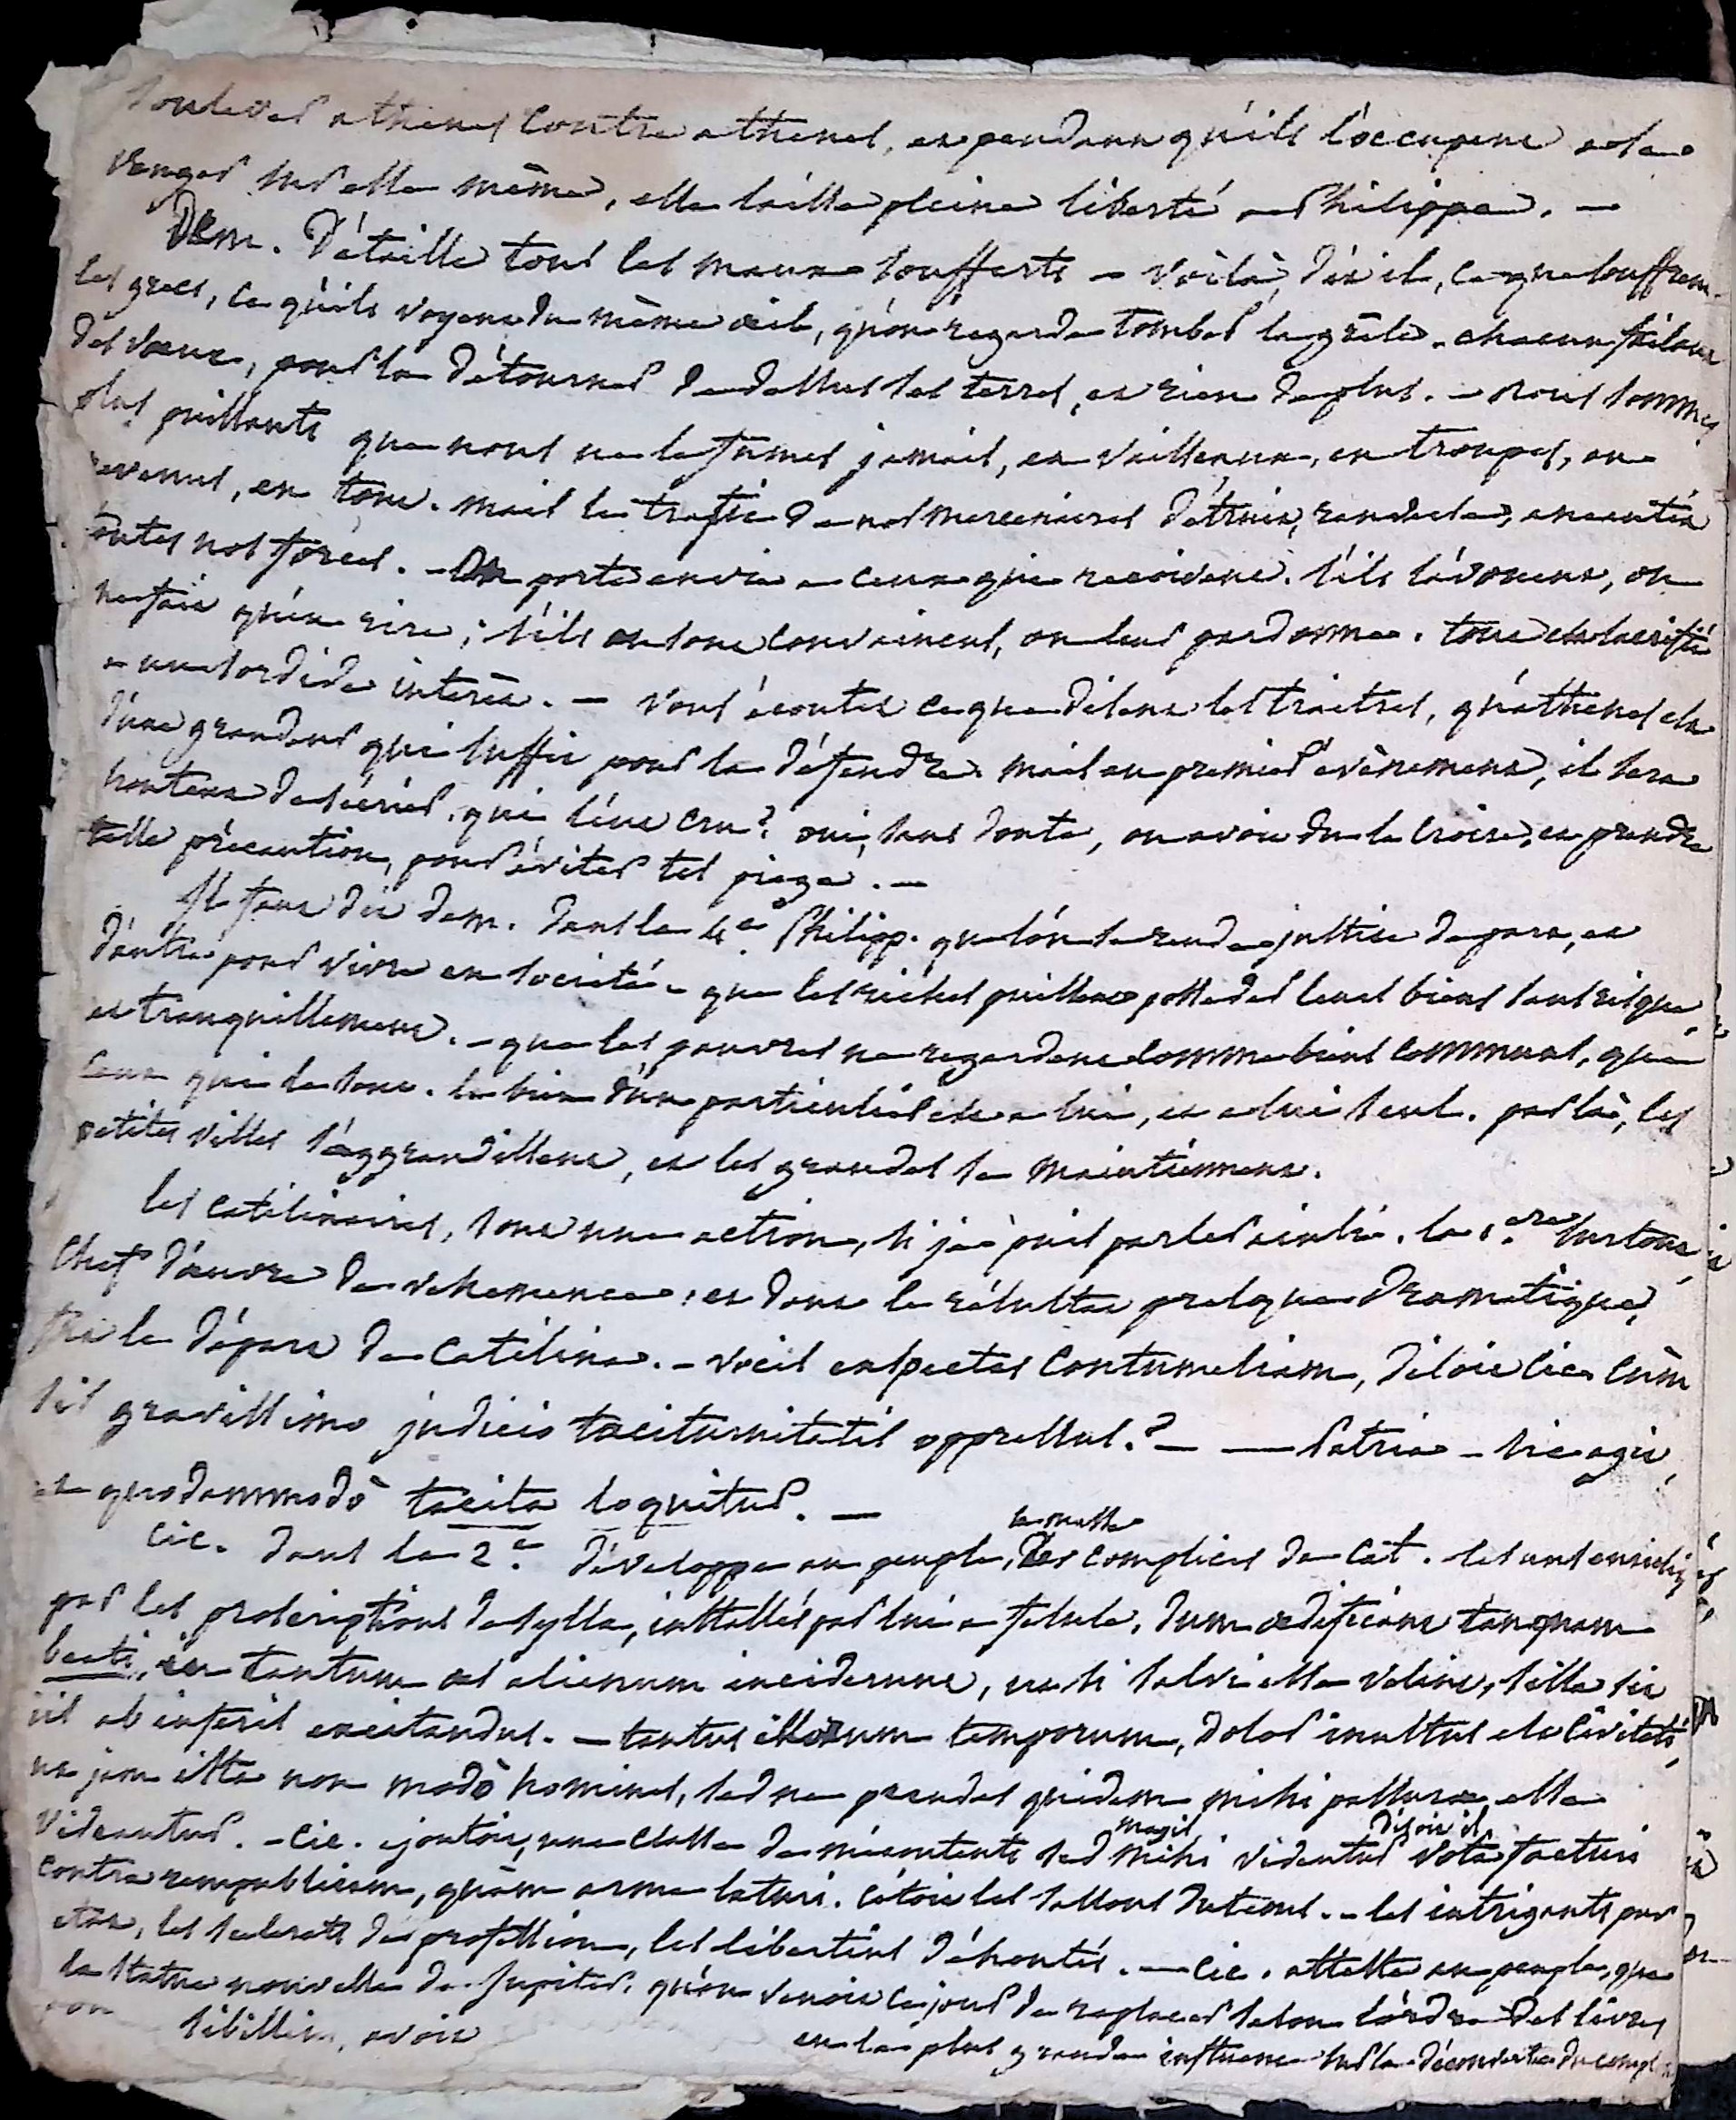 soulever athenes contre athenes, et pendant qu'ils l'occupent a se
venger sur elle même, elle laisse pleine liberté a Philippe. —
Dém. Détaille tous les maux soufferts — voilà, dit il, ce que souffrent
les grecs, ce qu'ils voyent du même œil, qu'on regarde tomber la grêle. chacun faisant
des vœux, pour la détourner de dessus ses terres, et rien de plus. — nous sommes
plus puissants que nous ne le fumes jamais, en vaisseaux, en troupes, en
revenus, en tout. mais le trafic de nos mercenaires détruit, rend vide, anéantit
toutes nos forces. — On porte envie a ceux qui reçoivent. s'ils l'avouent, on
ne fait qu'en rire ; s'ils en sont convaincus, on leur pardonne. tout est sacrifié
a un sordide interêt. — vous écoutés ce que disent les traitres, qu'athenes est
d'une grandeur qui suffit pour la défendre. mais au premier évènement, il sera
honteux de s'écrier, qui l'eut cru ? oui, sans doute, on avoit du le croire, et prendre
telle précaution, pour éviter tel piege. —
Il faut dit dem. dans la 4e. Philipp. que l'on se rende justice de part, et
d'autre pour vivre en societé — que les riches puissent posseder leurs biens sans risque,
et tranquillement. — que les pauvres ne regardent comme biens communs, que
ceux qui le sont. le bien d'un particulier est a lui, et a lui seul. par là, les
petites villes s'aggrandissent, et les grandes se maintiennent.
les catilinaires, sont une action, si je puis parler ainsi. la 1.ere surtout,
chef d'œuvre de vehemence, et dont le résultat presque dramatique,
fut le départ de Catilina. — vocis exspectas contumeliam, disoit Cic. cùm
sis gravissimo judicio taciturnitatis oppressus ? — — Patria — sic agit,
et quodammodò tacita loquitur. —
Cic. dans la 2.e développe au peuple, la masse des complices de Cat. les uns enrichis
par les proscriptions de sylla, installés par lui a fesule. dum ædificant tanquam
beati, in tantum æs alienum inciderunt, ut si salvi esse velint, silla sit
iis ab inferis excitandus. — tantus illorum temporum, dolor inustus est civitati,
ut jam ista non modò homines, sed ne pecudes quidem mihi passuræ esse
videantur. — Cic. ajoutoit, une classe de mécontents sed magis mihi videntur disoit il, vota facturi
contra rempublicam, quàm arma laturi. c'étoit les sallons du tems. — les intrigants par
état, les scelerats de profession, les libertins déhontés. — Cic. atteste au peuple, que
la statue nouvelle de Jupiter, qu'on venoit ce jour de replacer selon l'ordre des livres
sibillins, avoit eu la plus grande influence sur la découverte du compl